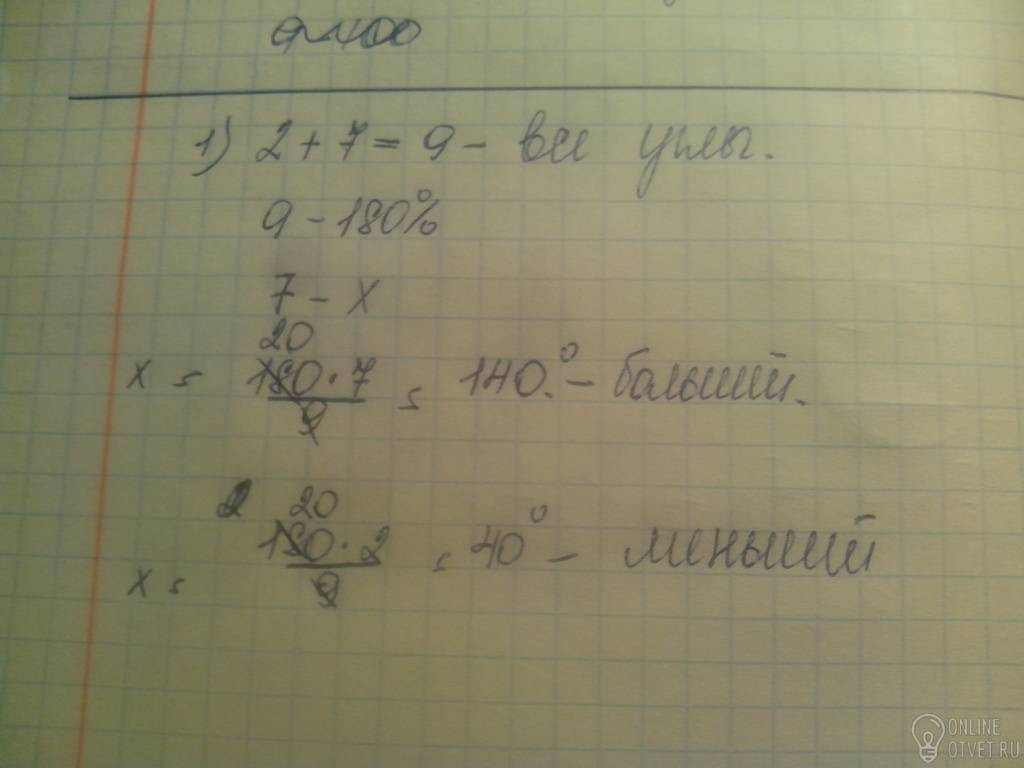 1) 2 + 7 = 9 - все углы.
9 - 180%
7 - x
20
x = 180 · 7 / 9 = 140.° - больший.
20
x = 180 · 2 / 9 = 40° - меньший
ONLINE
OTVET.RU